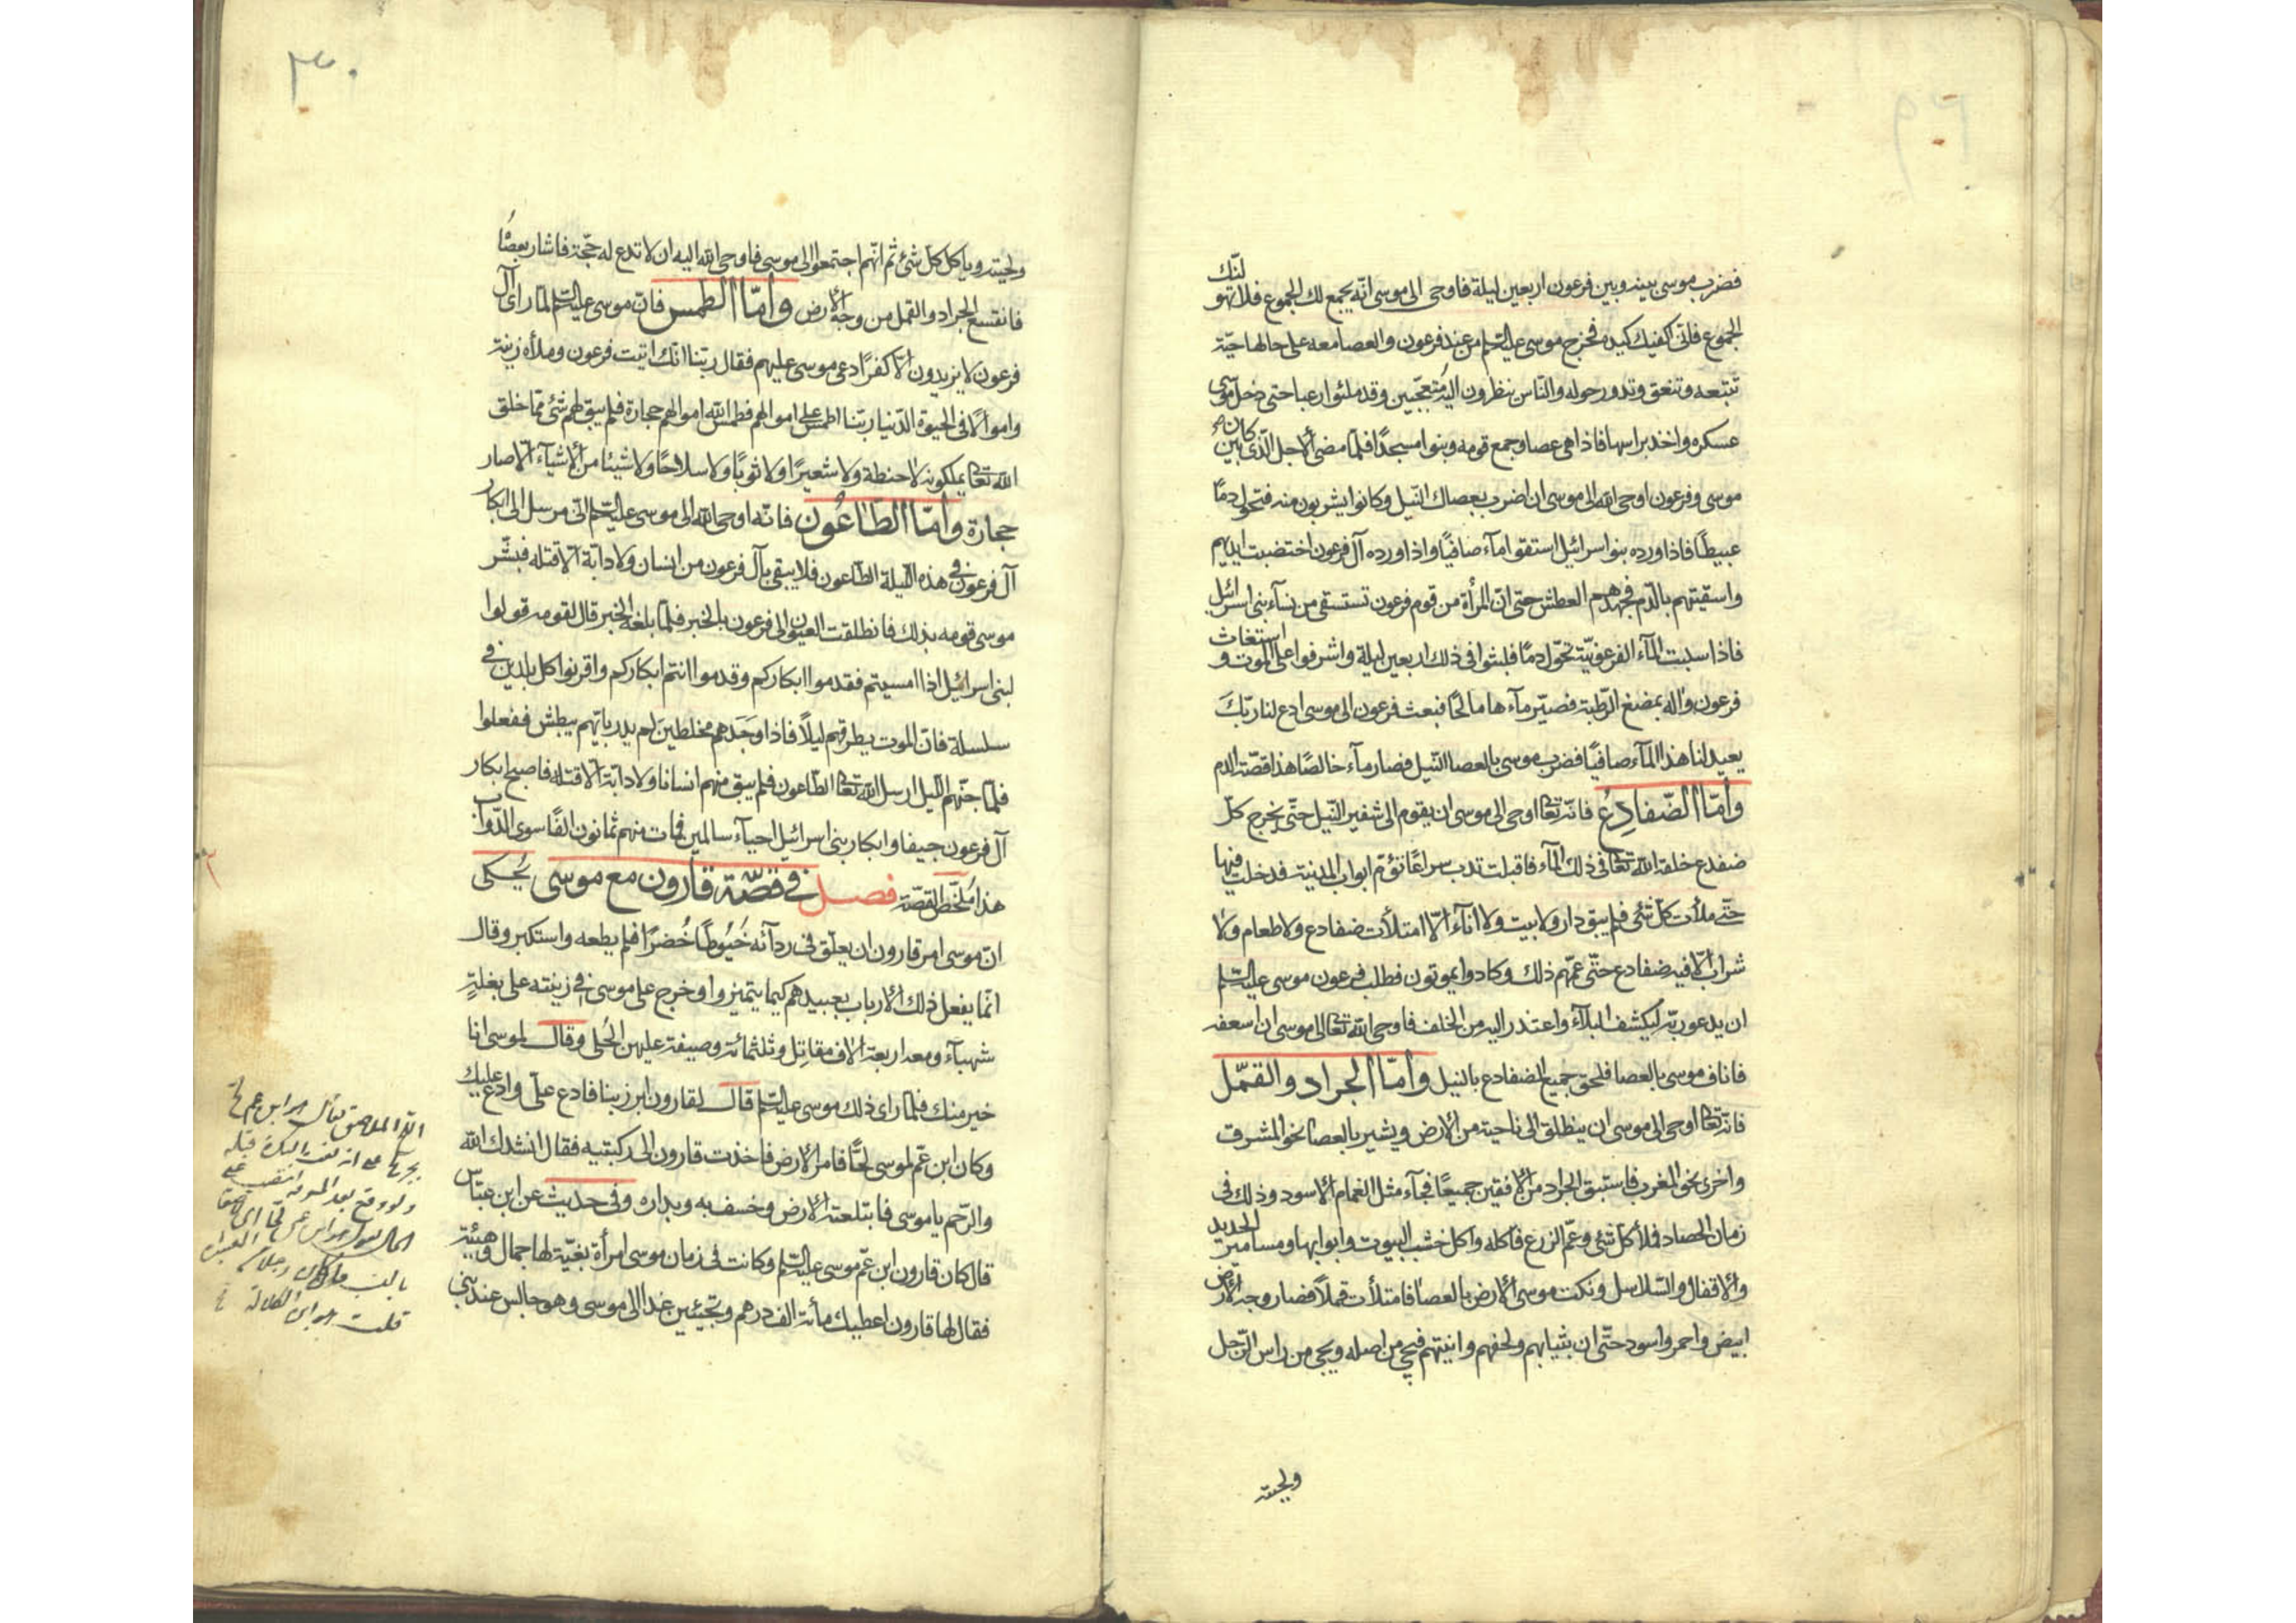 فضرب موسى بينه وبين فرعون اربعين ليلة فاوحى الى موسى انّه يجمع لك الجموع فلا تهولنّك
الجموع فانّى اكفيك كيده فخرج موسى عليه السلم من عند فرعون والعصا معه على حالها حيّة
تتبعه وتنعق وتدور حوله والنّاس ينظرون اليه متعجّبين وقد ملئوا رعبا حتى دخل موسى
عسكره واخذ براسها فاذا هى عصا وجمع قومه وبنوا مسجدًا فلمّا مضى الاجل الّذى كان بين
موسى وفرعون اوحى الله الى موسى ان اضرب بعصاك النّيل وكانوا يشربون منه فتحول دمًا
عبيطًا فاذا ورده بنو اسرائيل استقوا مآء صافيًا واذا ورده آل فرعون اختضبت ايديهم
واسقيتهم بالدّم فجهدهم العطش حتى انّ المرأة من قوم فرعون تستسقى من نسآء بنى اسرائيل
فاذا سبت المآء الفرعونيّة تحوّل دمًا فلبثوا فى ذلك اربعين ليلة واشرفوا على الموت واستغاث
فرعون وآله بمضغ الرّطبة فصيّر مآءها مالحًا فبعث فرعون الى موسى ادع لنا ربّكَ
يعيد لنا هذا المآء صافيًا فضرب موسى بالعصا النّيل فصار مآء خالصًا هذا قصّة الدم
وامّا الضّفادِعُ فانّه تعالى اوحى الى موسى ان يقوم الى شفير النّيل حتّى يخرج كلّ
ضفدع خلقه الله تعالى فى ذلك المآء فاقبلت تدب سراعًا تؤمّ ابواب المدينة فدخلت فيها
حتّى ملأت كلّ شئ فلم يبق دار ولا بيت ولا انآء الّا امتلأت ضفادع ولا طعام ولا
شراب الّا فيه ضفادع حتّى غمّهم ذلك وكادوا يموتون فطلب فرعون موسى عليه السلم
ان يدعو ربّه ليكشف البلآء واعتذر اليه من الخلف فاوحى الله تعالى الى موسى ان اسعفه
فاناف موسى بالعصا فلحق جميع الضفادع بالنيل وامّا الجراد والقمّل
فانّه تعالى اوحى الى موسى ان ينطلق الى ناحية من الارض ويشير بالعصا نحو المشرق
واخرى نحو المغرب فاستبق الجراد من الافقين جميعًا فجآء مثل الغمام الاسود وذلك فى
زمان الحصاد فلأ كل شئ وعمّ الزرع فاكله واكل خشب البيوت وابوابها ومسامير الحديد
والاقفال والسّلاسل ونكت موسى الارض بالعصا فامتلأت قملًا فصار وجه الارض
ابيض واحمر واسود حتّى ان بثيابهم ولحفهم وانيتهم فيجئ من اصله ويجى من راس الرّجل
ولحيته
٣٠
ولحيته وياكل كلّ شئ ثم انّهم اجتمعوا الى موسى فاوحى الله اليه ان لا تدع له حجّة فاشار بعصٰا
فانقشع الجراد والقمل من وجه الارض وامّا الطمس فانّ موسى عليه السلم لمّا راى آل
فرعون لا يزيدون الّا كفرًا دعى موسى عليهم فقال ربّنا انّك اتيت فرعون وملأه زينة
واموالًا فى الحيوة الدّنيا ربّنا اطمس على اموالهم فطمس الله اموالهم حجارة فلم يبق لهم شئ ممّا خلق
الله تعالى يملكونه لا حنطة ولا شعيرًا ولا ثوبًا ولا سلاحًا ولا شيئا من الاشيآء الّا صار
حجارة وامّا الطّاعُون فانّه اوحى الله الى موسى عليه السلم انّى مرسل الى ابكار
آل فرعون فى هذه اللّيلة الطّاعون فلا يبقى بآل فرعون من انسان ولا دابّة الّا قتله فبشّر
موسى قومه بذلك فانطلقت العيون الى فرعون بالخبر فلمّا بلغه الخبر قال لقومه قولوا
لبنى اسرائيل اذا امسيتم فقدموا ابكاركم وقدموا انتم ابكاركم واقرنوا كل بلدين فى
سلسلة فانّ الموت يطرقهم ليلًا فاذا وَجَدَهم مخلطين لم يدر بايّهم يبطش ففعلوا
فلمّا جنّهم اللّيل ارسل الله تعالى الطّاعون فلم يبق منهم انسانا ولا دابّة الّا قتله فاصبح ابكار
آل فرعون جيفا وابكار بنى اسرائيل احيآء سالمين فمات منهم ثمانون الفًا سوى الدّوابّ
هذا ملخّص القصّة فصل فى قصّة قارون مع موسى يُحكى
انّ موسى امر قارون ان يعلّق فى ردآئه خُيُوطًا خُضرًا فلم يطعه واستكبر وقال
انّما يفعل ذلك الارباب بعبيدهم كيما يتميزوا وخرج على موسى فى زينته على بغلةٍ
شهبآء ومعه اربعة الاف مقاتل وثلثمائة وصيفة عليهن الحُلى وقال لموسى انا
خير منك فلمّا راى ذلك موسى عليه السلم قال لقارون ابرز بنا فادع علىّ وادع عليك
وكان ابن عمّ لموسى لحًّا فامر الارض فاخذت قارون الى ركبتيه فقال انشدك الله
والرّحم يا موسى فابتلعته الارض وخسف به وبداره وفى حديث عن ابن عبّاس
قال كان قارون ابن عمّ موسى عليه السلم وكانت فى زمان موسى امرأة بغيّة لها جمال وهيئة
فقال لها قارون اعطيك مأئة الف درهم وتجيئين غدا الى موسى وهو جالس عند بنى